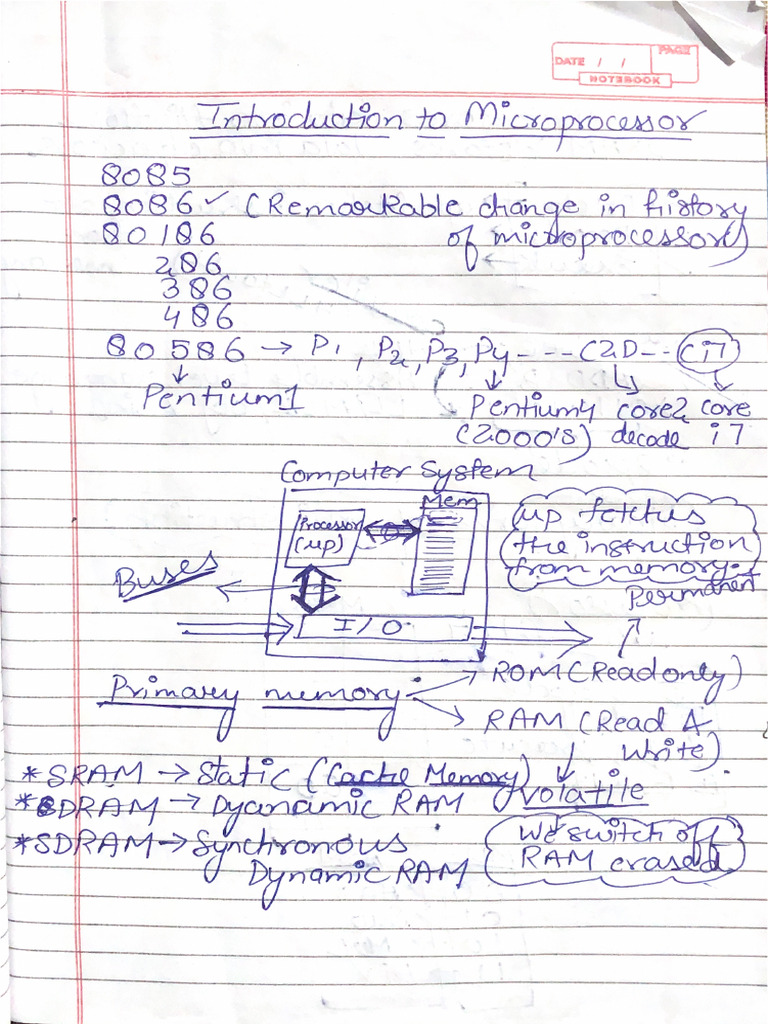 DATE / / PAGE
NOTEBOOK
Introduction to Microprocessor
8085
8086 ✓ (Remarkable change in history
80186 of microprocessors)
286
386
486
80586 → P1, P2, P3, P4 - - - C2D - - Ci7
Pentium1 Pentium4 core2 core
(2000's) decade i7
Computer System
Mem
Processor
(μp)
μp fetches
the instruction
from memory.
Buses
Permanent
I/O
Primary memory: → ROM (Read only)
→ RAM (Read &
Write)
*SRAM → Static (Cache Memory)
*DRAM → Dyanamic RAM volatile
*SDRAM → Synchronous
Dynamic RAM
We switch off
RAM erased